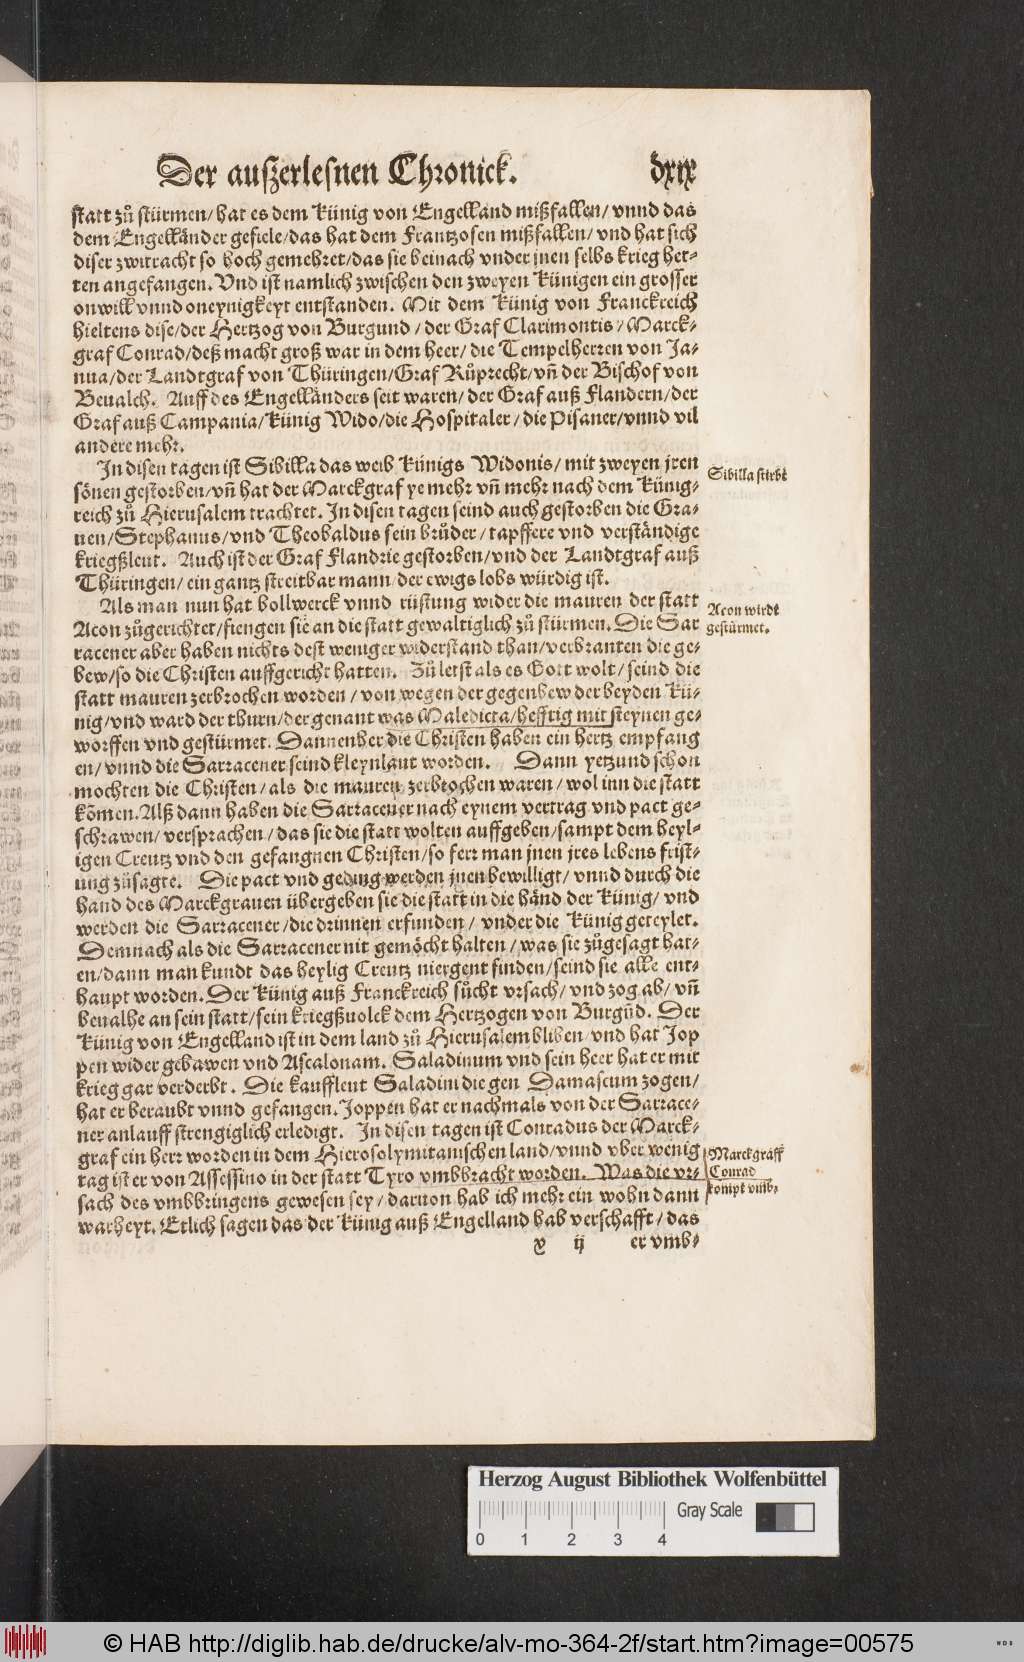 Der auſzerleſnen Chronick.
dxix
ſtatt zů ſtürmen/ hat es dem Künig von Engelland mißfallen/ vnnd das
dem Engelländer gefiele/das hat dem Frantzoſen mißfallen/ vnd hat ſich
diſer zwitracht ſo hoch gemehret/das ſie beinach vnder jnen ſelbs krieg het-
ten angefangen. Vnd iſt namlich zwiſchen den zweyen Künigen ein groſſer
onwill vnnd oneynigkeyt entſtanden. Mit dem Künig von Franckreich
hieltens diſe/der Hertzog von Burgund / der Graf Clarimontis/ Marck-
graf Conrad/deß macht groß war in dem heer/ die Tempelherren von Ja-
nua/der Landtgraf von Thüringen/Graf Růprecht/vñ der Biſchof von
Beualch. Auff des Engelländers ſeit waren/ der Graf auß Flandern/der
Graf auß Campania/Künig Wido/die Hoſpitaler / die Piſaner/vnnd vil
andere mehr.
In diſen tagen iſt Sibilla das weib Künigs Widonis/ mit zweyen jren
ſönen geſtorben/vñ hat der Marckgraf ye mehr vñ mehr nach dem Künig-
reich zů Hieruſalem trachtet. In diſen tagen ſeind auch geſtorben die Gra-
uen/Stephanus/vnd Theobaldus ſein brůder / tapffere vnd verſtändige
kriegßleut. Auch iſt der Graf Flandrie geſtorben/vnd der Landtgraf auß
Thüringen/ ein gantz ſtreitbar mann/ der ewigs lobs würdig iſt.
Sibilla ſtirbt
Als man nun hat bollwerck vnnd rüſtung wider die mauren der ſtatt
Acon zůgerichtet/fiengen ſie an die ſtatt gewaltiglich zů ſtürmen. Die Sar
racener aber haben nichts deſt weniger widerſtand than/verbranten die ge-
bew/ſo die Chriſten auffgericht hatten. Zů letſt als es Gott wolt/ ſeind die
ſtatt mauren zerbrochen worden / von wegen der gegenbew der beyden Kü-
nig/vnd ward der thurn/der genant was Maledicta/hefftig mit ſteynen ge-
worffen vnd geſtürmet. Dannenher die Chriſten haben ein hertz empfang
en/ vnnd die Sarracener ſeind kleynlaut worden. Dann yetzund ſchon
mochten die Chriſten/ als die mauren zerbrochen waren/ wol inn die ſtatt
kõmen. Alß dann haben die Sarracener nach eynem vertrag vnd pact ge-
ſchrawen/ verſprachen / das ſie die ſtatt wolten auffgeben/ſampt dem heyl-
igen Creutz vnd den gefangnen Chriſten/ſo ferr man jnen jres lebens friſt-
ung zůſagte. Die pact vnd geding werden jnen bewilligt/ vnnd durch die
hand des Marckgrauen übergeben ſie die ſtatt in die händ der Künig/ vnd
werden die Sarracener/die drinnen erfunden / vnder die Künig geteylet.
Demnach als die Sarracener nit gemöcht halten / was ſie zůgeſagt hat-
en/dann man kundt das heylig Creutz niergent finden/ſeind ſie alle ent-
haupt worden. Der Künig auß Franckreich ſůcht vrſach/ vnd zog ab/ vñ
beualhe an ſein ſtatt/ſein kriegßuolck dem Hertzogen von Burgũd. Der
Künig von Engelland iſt in dem land zů Hieruſalem bliben/ vnd hat Jop
pen wider gebawen vnd Aſcalonam. Saladinum vnd ſein heer hat er mit
krieg gar verderbt. Die kauffleut Saladini die gen Damaſcum zogen/
hat er beraubt vnnd gefangen. Joppen hat er nachmals von der Sarrace-
ner anlauff ſtrengiglich erledigt. In diſen tagen iſt Conradus der Marck-
graf ein herr worden in dem Hieroſolymitaniſchen land/vnnd vber wenig
tag iſt er von Aſſeſſino in der ſtatt Tyro vmbbracht worden. Was die vr-
ſach des vmbbringens geweſen ſey/ daruon hab ich mehr ein wohn dann
warheyt. Etlich ſagen das der Künig auß Engelland hab verſchafft/ das
Acon wirdt
geſtürmet.
Marckgraff
Conrad
kompt vmb-
x ij er vmb-
Herzog August Bibliothek Wolfenbüttel
Gray Scale
0 1 2 3 4
© HAB http://diglib.hab.de/drucke/alv-mo-364-2f/start.htm?image=00575